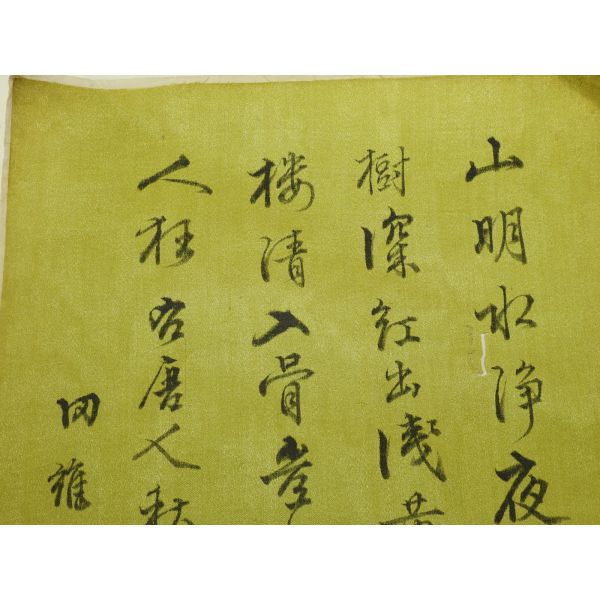 山明水浄夜
樹深紅出淺黄
楼清入骨豈
人狂 右唐人秋
田雄